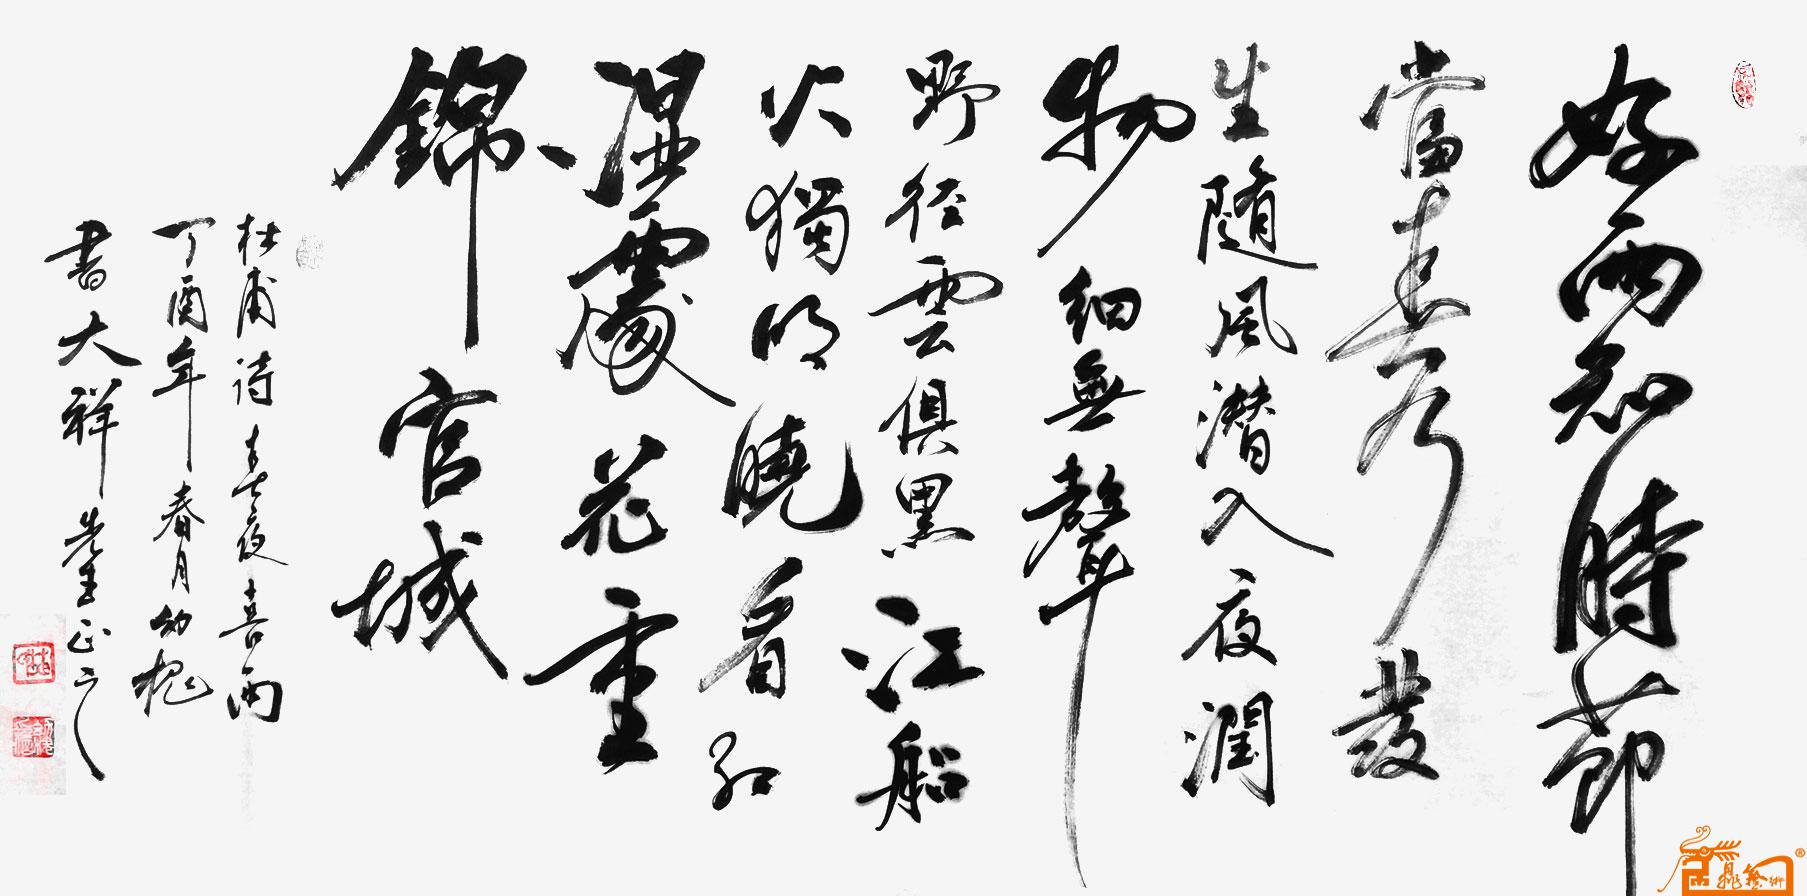 好雨知時節
當春乃發
生隨風潜入夜潤
物細無聲
野径雲俱黑江船
火獨明曉看紅
湿處花重
錦官城
杜甫詩春夜喜雨
丁酉年春月幼槐
書大祥先生正之